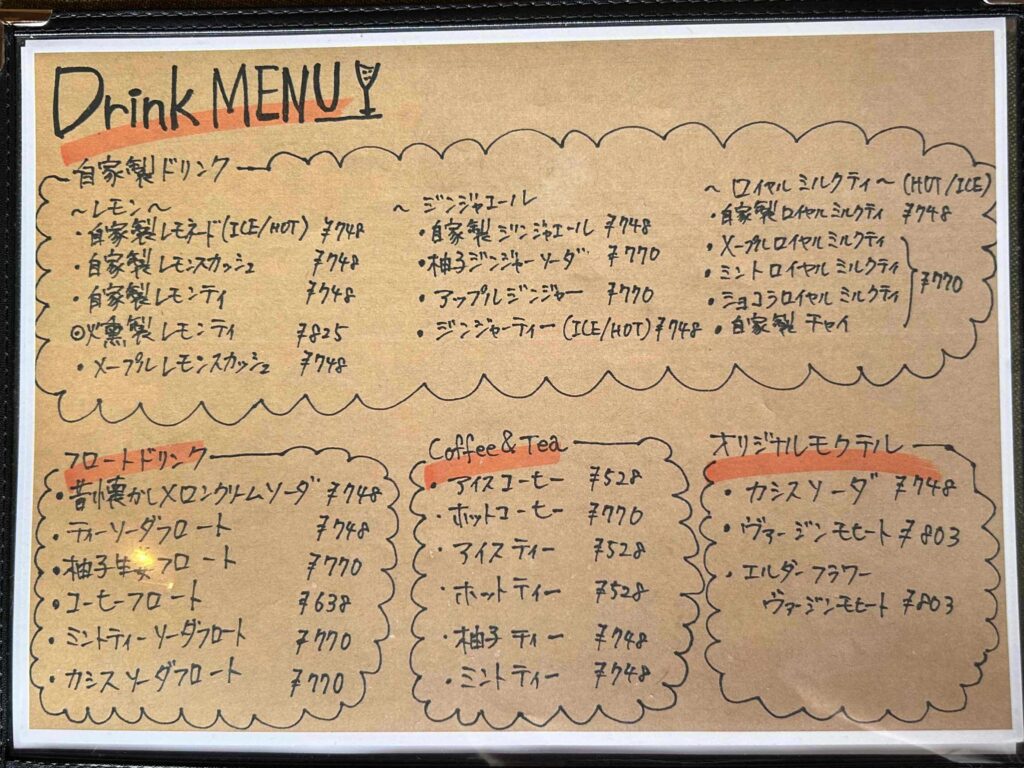 Drink MENU
自家製ドリンク
〜レモン〜
・自家製レモネード(ICE/HOT) ¥748
・自家製レモンスカッシュ ¥748
・自家製レモンティ ¥748
◎燻製レモンティ ¥825
・メープルレモンスカッシュ ¥748
〜ジンジャエール
・自家製ジンジャエール ¥748
・柚子ジンジャーソーダ ¥770
・アップルジンジャー ¥770
・ジンジャーティー(ICE/HOT) ¥748
〜ロイヤルミルクティ〜(HOT/ICE)
・自家製ロイヤルミルクティ ¥748
・メープルロイヤルミルクティ
・ミントロイヤルミルクティ
・ショコラロイヤルミルクティ
・自家製チャイ
¥770
フロートドリンク
・昔懐かしメロンクリームソーダ ¥748
・ティーソーダフロート ¥748
・柚子生姜フロート ¥770
・コーヒーフロート ¥638
・ミントティーソーダフロート ¥770
・カシスソーダフロート ¥770
Coffee&Tea
・アイスコーヒー ¥528
・ホットコーヒー ¥770
・アイスティー ¥528
・ホットティー ¥528
・柚子ティー ¥748
・ミントティー ¥748
オリジナルモクテル
・カシスソーダ ¥748
・ヴァージンモヒート ¥803
・エルダーフラワー
ヴァージンモヒート ¥803